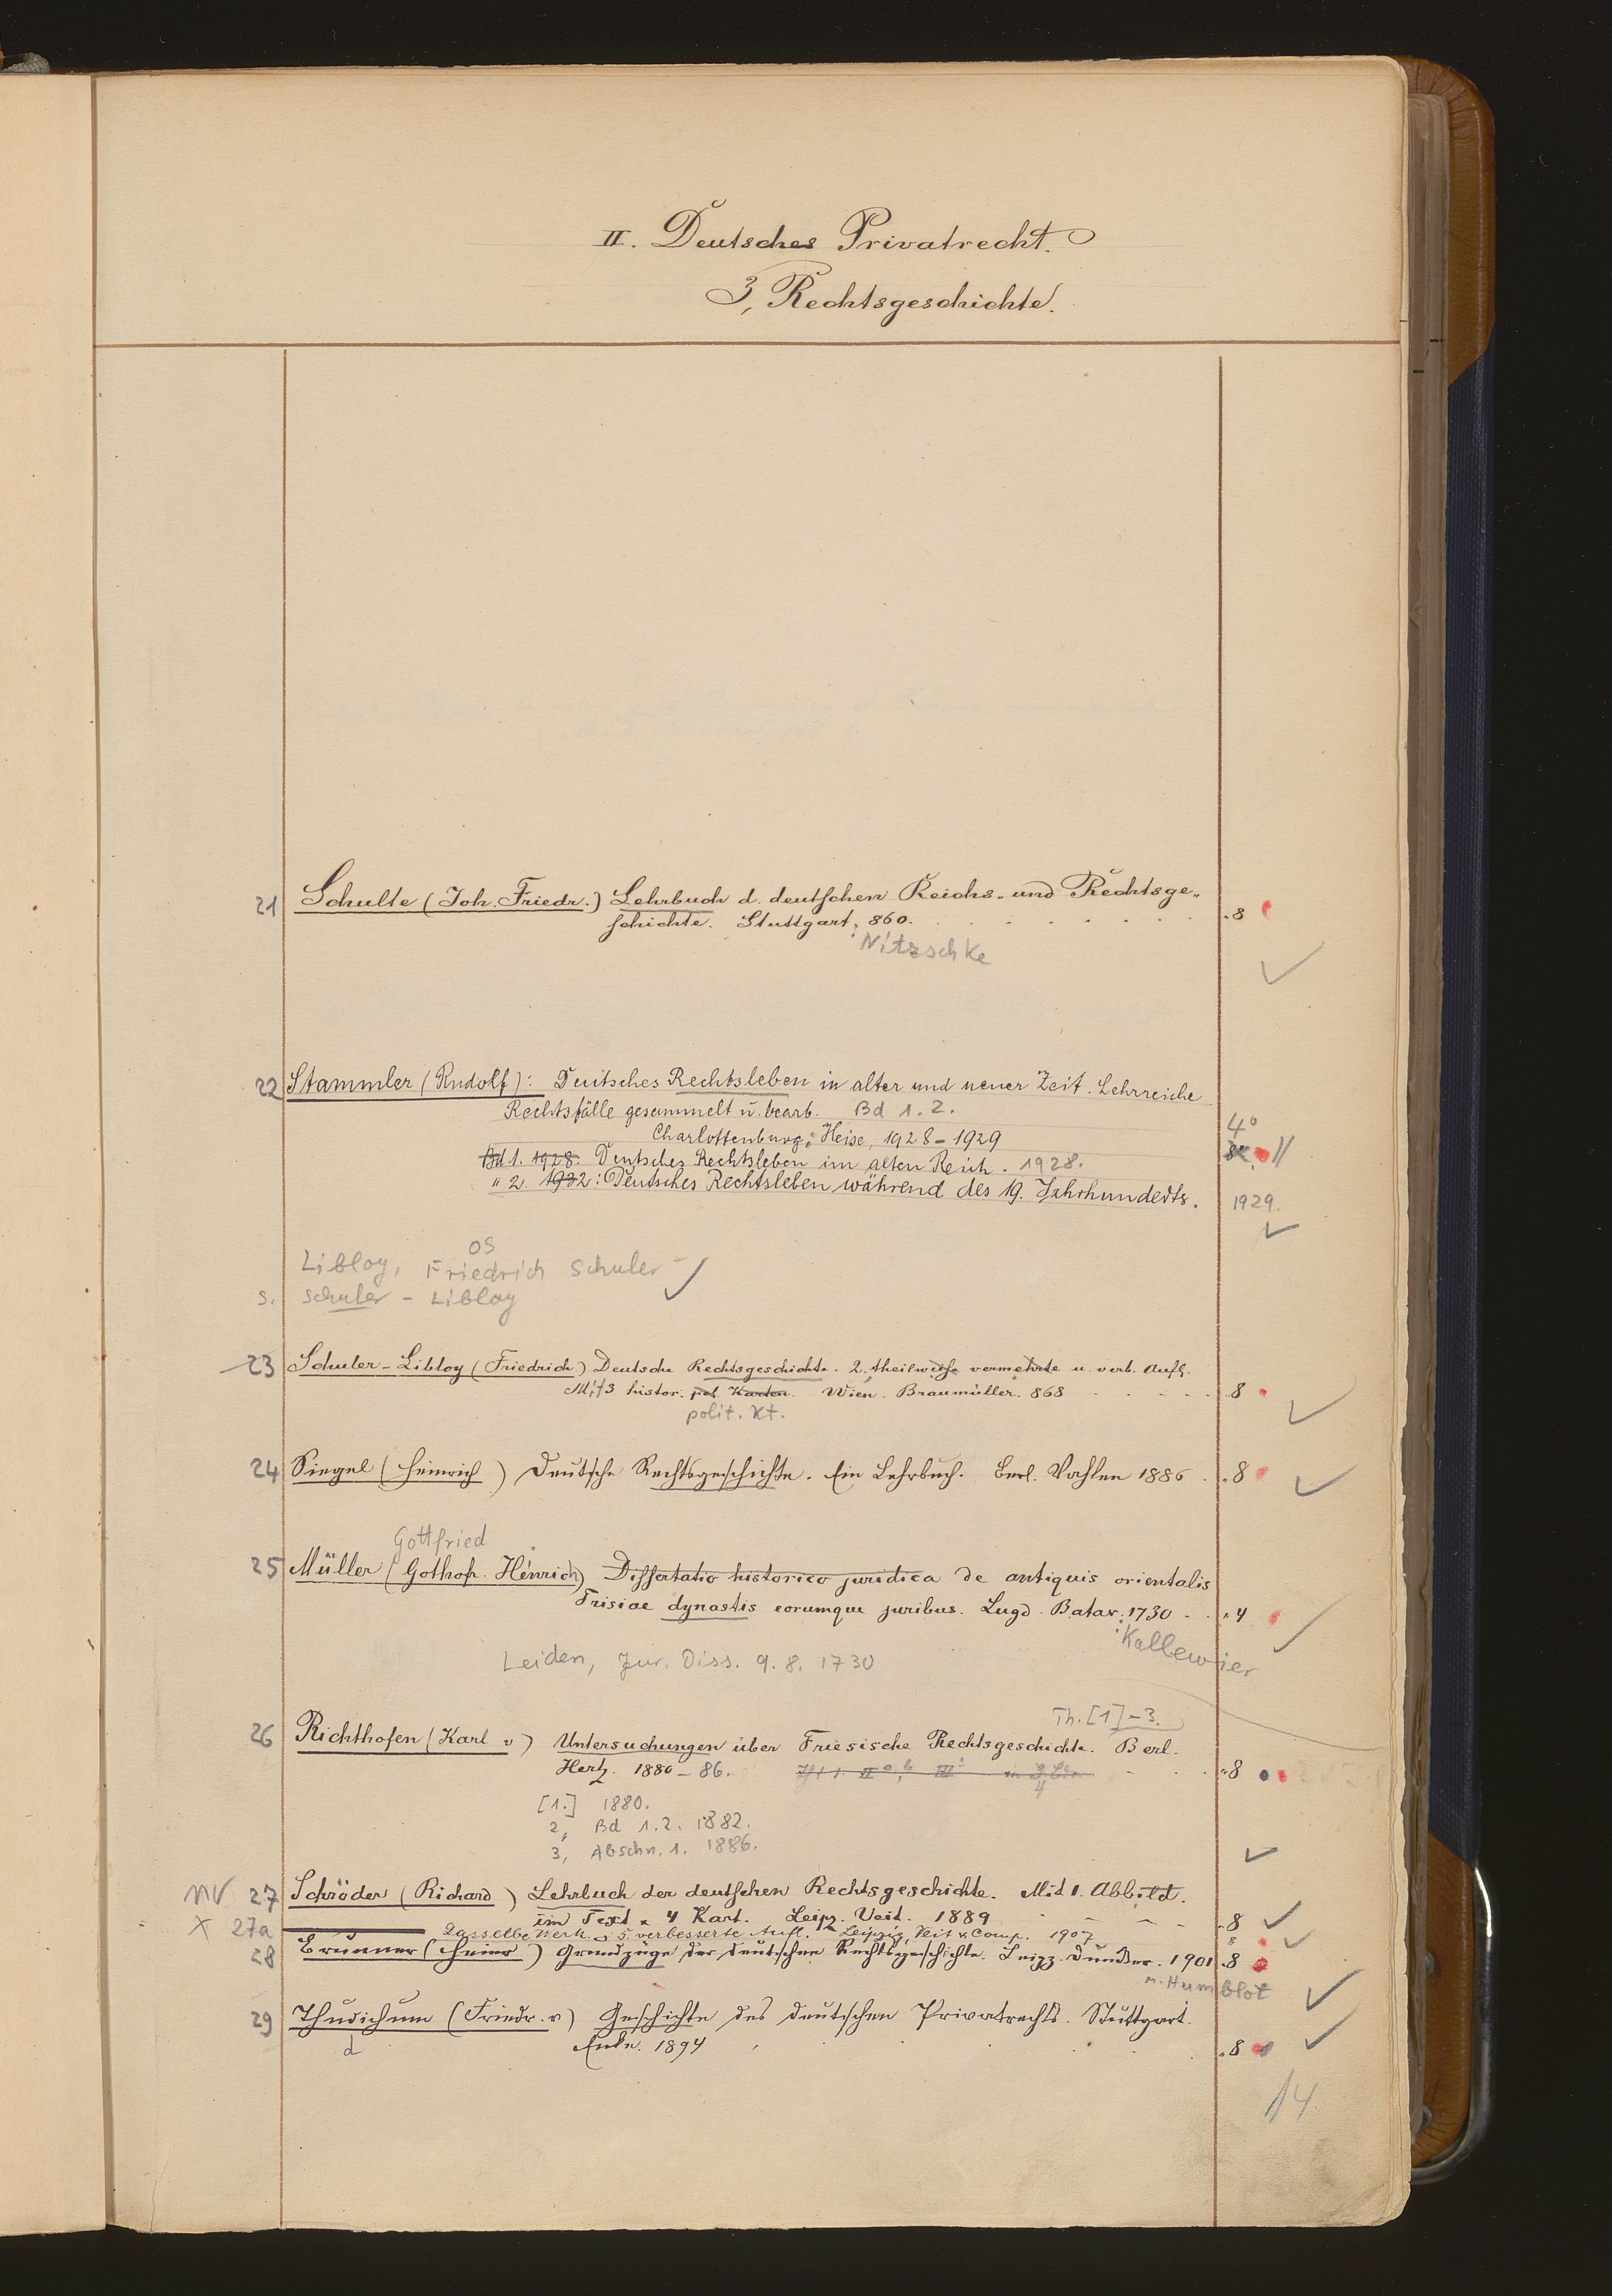 II. Deutsches Privatrecht.
3, Rechtsgeschichte.
21 Schulte (Joh. Friedr.) Lehrbuch d. deutschen Reichs- und Rechtsge-
schichte. Stuttgart, 860. 8
: Nitzschke
22 Stammler (Rudolf): Deutsches Rechtsleben in alter und neuer Zeit. Lehrreiche
Rechtsfälle gesammelt u. bearb. Bd 1. 2.
Charlottenburg: Heise, 1928-1929 4°
Bd 1. 1928. Deutsches Rechtsleben im alten Reich. 1928. 8°
" 2. 1932: Deutsches Rechtsleben während des 19. Jahrhunderts. 1929.
os
Libloy, Friedrich Schuler-
s. Schuler-Libloy
23 Schuler-Libloy (Friedrich) Deutsche Rechtsgeschichte. 2. theilweise vermehrte u. verb. Aufl.
Mit 3 histor. pol. Karten. Wien. Braumüller. 868 8
polit. Kt.
24 Siegel (Heinrich) Deutsche Rechtsgeschichte. Ein Lehrbuch. Berl. Vahlen 1886. 8
Gottfried
25 Müller (Gothofr. Henrich) Dissertatio historico juridica de antiquis orientalis
Frisiae dynastis eorumque juribus. Lugd. Batav. 1730 4
: Kallewier
Leiden, Jur. Diss. 9. 8. 1730
Th. [1]-3.
26 Richthofen (Karl v) Untersuchungen über Friesische Rechtsgeschichte. Berl.
Hertz. 1880-86. 8
4
[1.] 1880.
2, Bd 1. 2. 1882.
3, Abschn. 1. 1886.
NV 27 Schröder (Richard) Lehrbuch der deutschen Rechtsgeschichte. Mit 1. Abbild.
im Text u 4 Kart. Leipz. Veit. 1889 8
X 27a Dasselbe Werk. 5. verbesserte Aufl. Leipzig, Veit & Comp. 1907 8
28 Brunner (Heinr) Grundzüge der deutschen Rechtsgeschichte. Leipz. Duncker. 1901 8
u. Humblot
29 Thudichum (Friedr. v) Geschichte des deutschen Privatrechts. Stuttgart.
d Enke. 1894 8
14